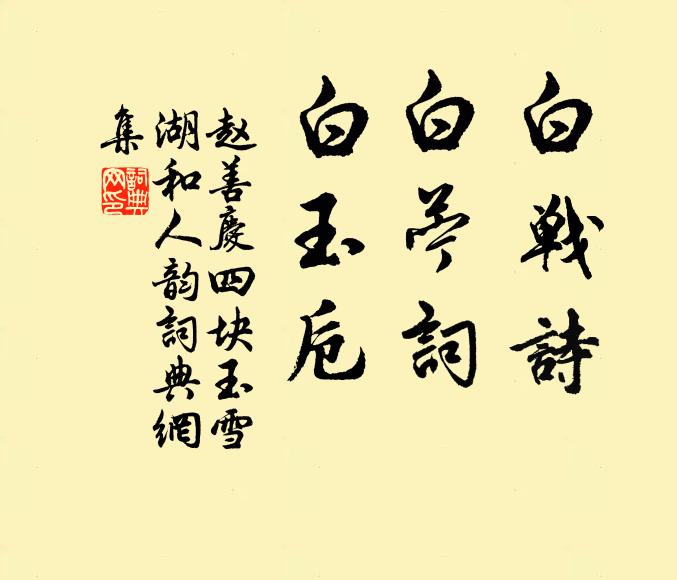 白戦詩
白苧詞
白玉卮
赵善慶四块玉雪
湖和人韵詞典網
集
詞典
网印